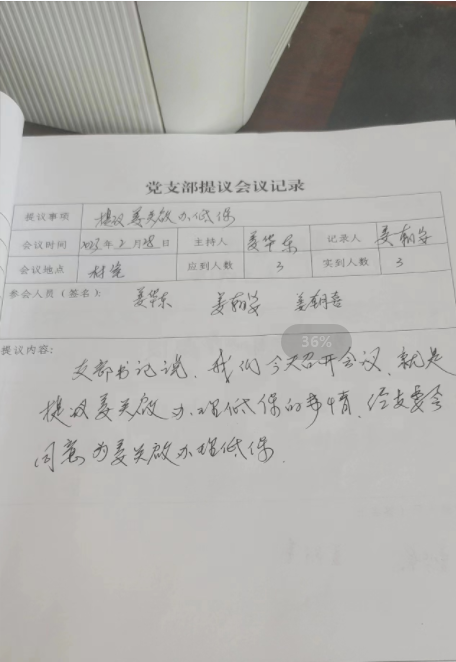 党支部提议会议记录
提议事项 提议姜关啟办低保
会议时间 2023年2月28日 主持人 姜华东 记录人 姜朝安
会议地点 村党 应到人数 3 实到人数 3
参会人员（签名）： 姜华东 姜朝安 姜朝喜
36%
提议内容：
支部书记说，我们今天召开会议，就是
提议姜关啟办理低保的事情，经支委会
同意为姜关啟办理低保．